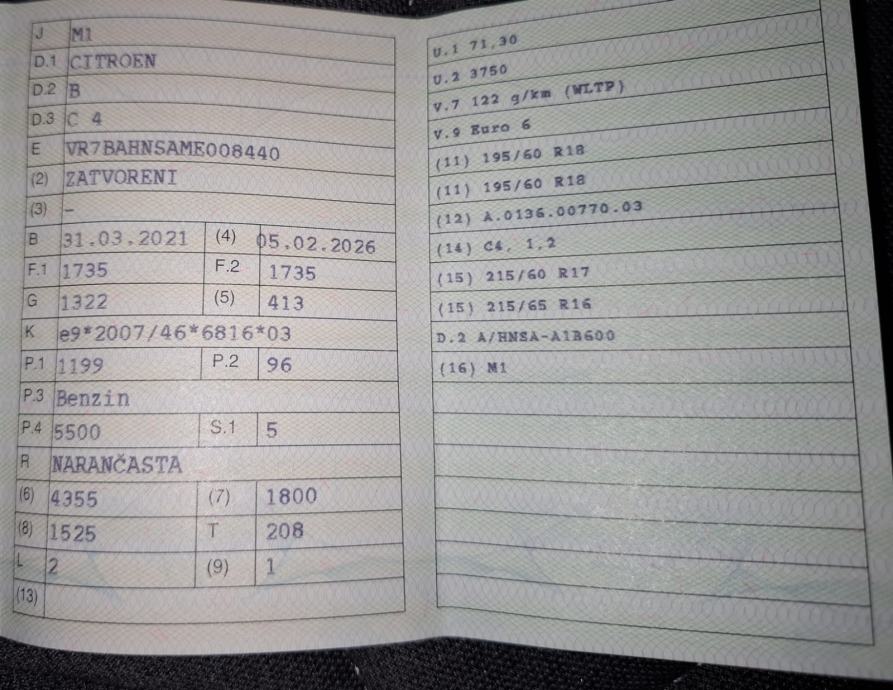 J M1
D.1 CITROEN
D.2 B
D.3 C 4
E VR7BAHNSAME008440
(2) ZATVORENI
(3) –
B 31.03.2021 (4) 05.02.2026
F.1 1735 F.2 1735
G 1322 (5) 413
K e9*2007/46*6816*03
P.1 1199 P.2 96
P.3 Benzin
P.4 5500 S.1 5
R NARANČASTA
(6) 4355 (7) 1800
(8) 1525 T 208
L 2 (9) 1
(13)
U.1 71,30
U.2 3750
V.7 122 g/km (WLTP)
V.9 Euro 6
(11) 195/60 R18
(11) 195/60 R18
(12) A.0136.00770.03
(14) C4, 1,2
(15) 215/60 R17
(15) 215/65 R16
D.2 A/HNSA-A1B600
(16) M1